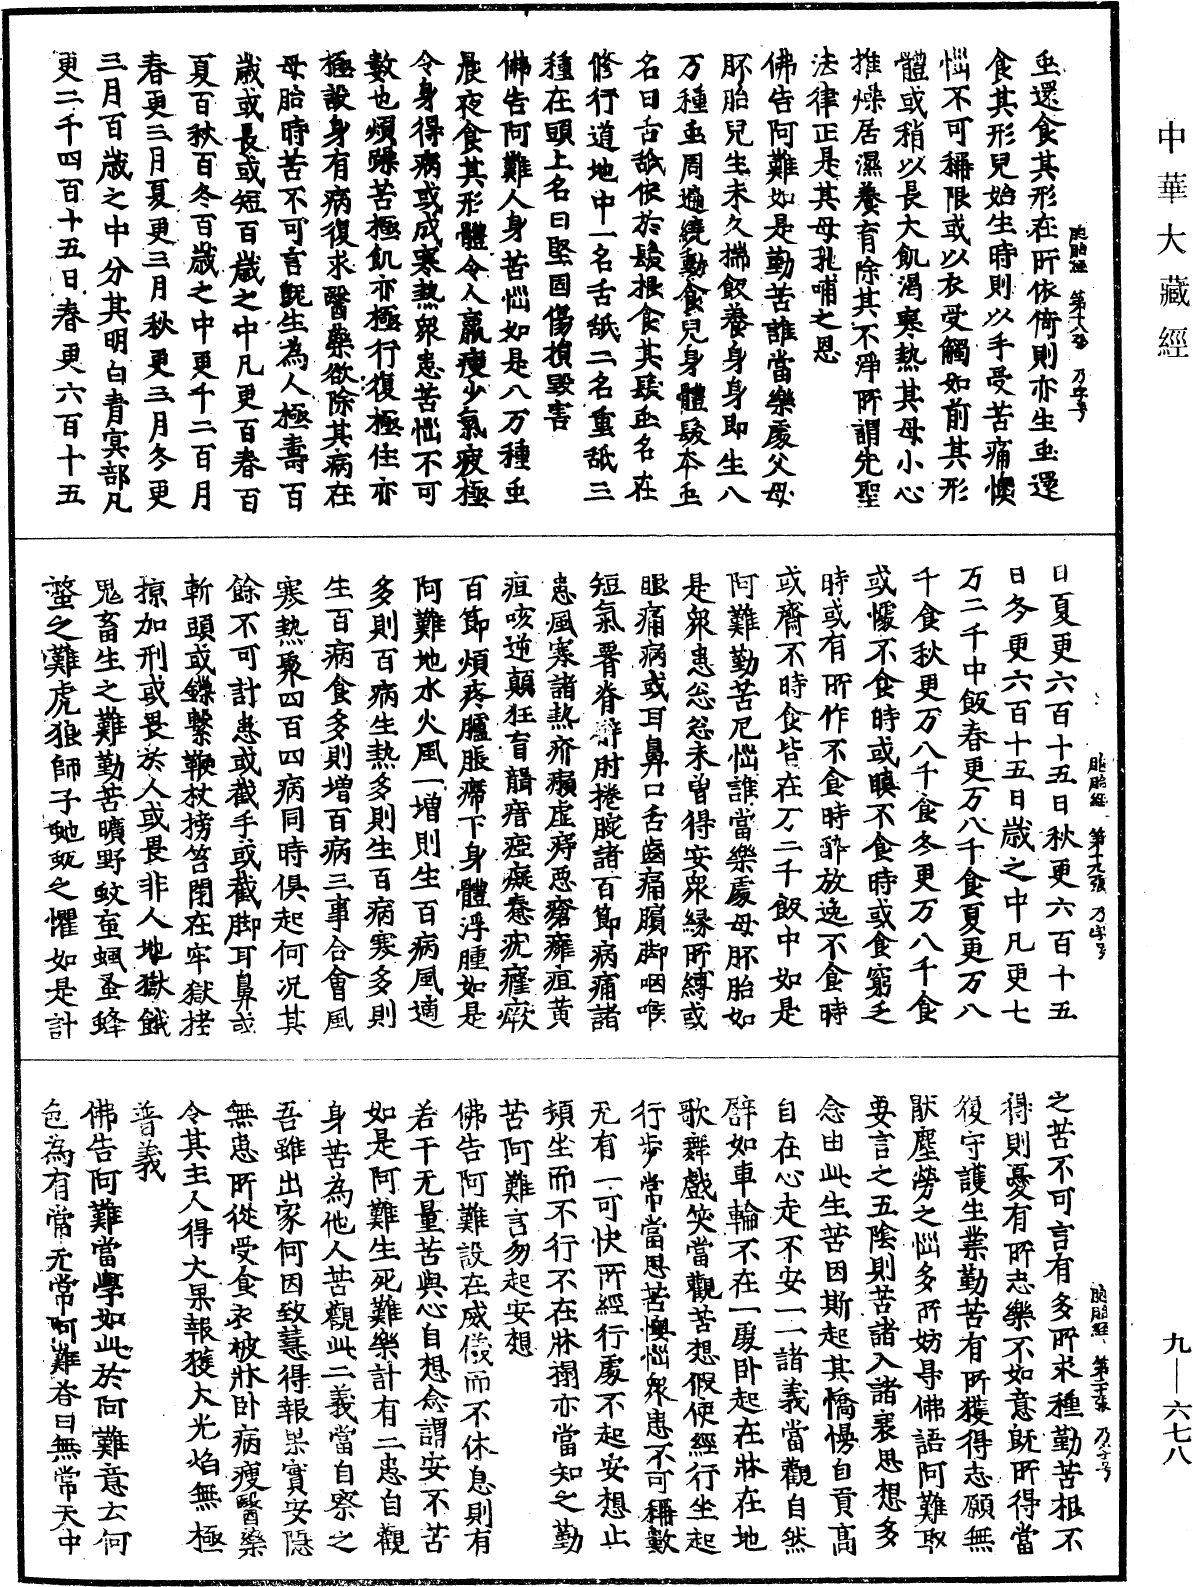 中華大藏經
胞胎經 第十八張 乃字号
虫還食其形在所依倚則亦生虫還
食其形兒始生時則以手受苦痛懊
惱不可稱限或以衣受觸如前其形
體或稍以長大飢渴寒熱其母小心
推燥居濕養育除其不淨所謂先聖
法律正是其母乳哺之恩
佛告阿難如是勤苦誰當樂處父母
胚胎兒生未久揣飲養身身即生八
万種虫周遍繞動食兒身體髮本虫
名曰舌舐依於髮根食其髮虫名在
修行道地中一名舌舐二名重舐三
種在頭上名曰堅固傷損毀害
佛告阿難人身苦惱如是八万種虫
晨夜食其形體令人羸瘦少氣疲極
令身得病或成寒熱眾患苦惱不可
數也煩躁苦極飢亦極行復極住亦
極設身有病復求醫藥欲除其病在
母胎時苦不可言既生為人極壽百
歲或長或短百歲之中凡更百春百
夏百秋百冬百歲之中更千二百月
春更三月夏更三月秋更三月冬更
三月百歲之中分其明白青冥部凡
更二千四百十五日春更六百十五
胞胎經 第十九張 乃字号
日夏更六百十五日秋更六百十五
日冬更六百十五日歲之中凡更七
万二千中飯春更万八千食夏更万八
千食秋更万八千食冬更万八千食
或懅不食時或瞋不食時或食窮乏
時或有所作不食時醉放逸不食時
或齋不時食皆在万二千飯中如是
阿難勤苦厄惱誰當樂處母胚胎如
是眾患忩忩未曾得安眾緣所縛或
眼痛病或耳鼻口舌齒痛臏脚咽喉
短氣胷脊臂肘捲腕諸百節病痛諸
患風寒諸熱疥癩虛痔惡瘡癰疽黃
疸咳逆顛狂盲聾瘖瘂癡惷疣癃瘚
百節煩疼臚脹滯下身體浮腫如是
阿難地水火風一增則生百病風適
多則百病生熱多則生百病寒多則
生百病食多則增百病三事合會風
寒熱聚四百四病同時俱起何況其
餘不可計患或截手或截脚耳鼻或
斬頭或鏁繫鞭杖搒笞閇在牢獄拷
掠加刑或畏於人或畏非人地獄餓
鬼畜生之難勤苦曠野蚊䖟蝨蚤蜂
螫之難虎狼師子虵蚖之懼如是計
胞胎經 第二十張 乃字号
之苦不可言有多所求種勤苦根不
得則憂有所志樂不如意既所得當
復守護生業勤苦有所獲得志願無
猒塵勞之惱多所妨㝵佛語阿難取
要言之五陰則苦諸入諸衰思想多
念由此生苦因斯起其憍慢自貢高
自在心走不安一一諸義當觀自然
辟如車輪不在一處卧起在牀在地
歌舞戲笑當觀苦想假使經行坐起
行步常當思苦懊惱眾患不可稱數
无有一可快所經行處不起安想止
頻坐而不行不在牀榻亦當知之勤
苦阿難言勿起安想
佛告阿難設在威儀而不休息則有
若干无量苦與心自想念謂安不苦
如是阿難生死難樂計有二患自觀
身苦為他人苦觀此二義當自察之
吾雖出家何因致慧得報果實安隱
無患所從受食衣被牀卧病瘦醫藥
令其主人得大果報獲大光焰無極
普義
佛告阿難當學如此於阿難意云何
色為有常无常阿難荅曰無常天中
九—六七八